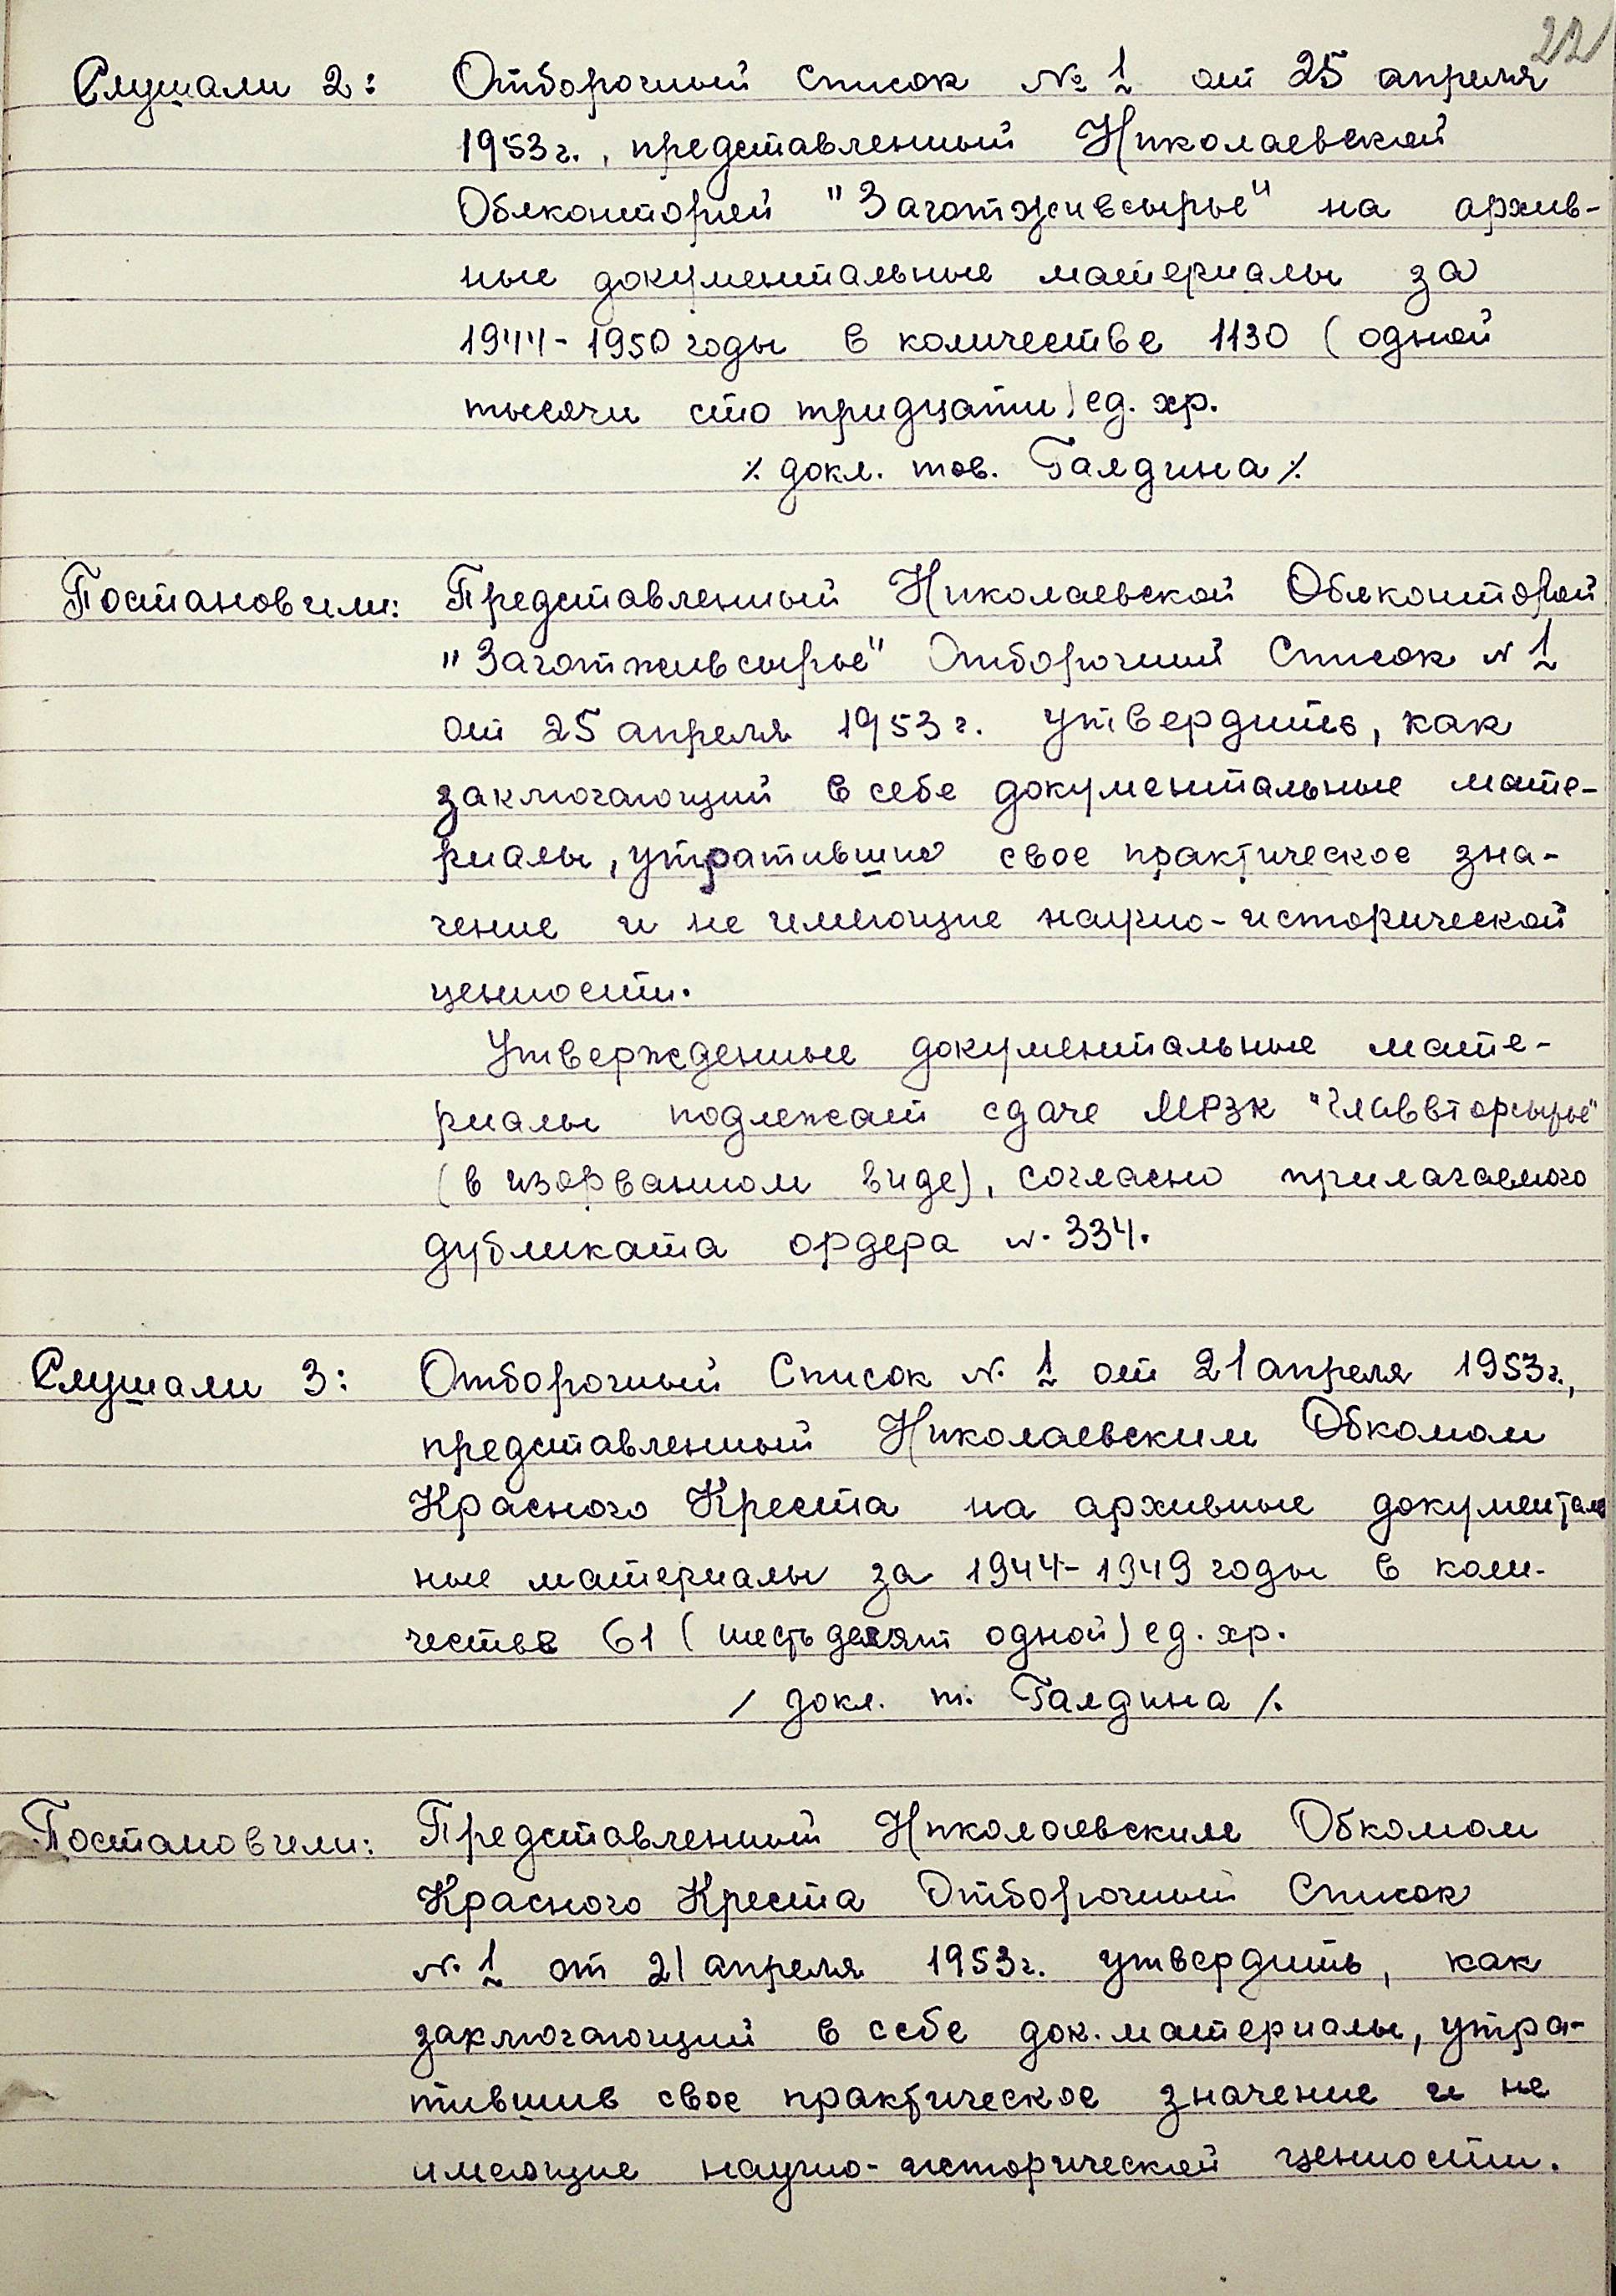 22
Слушали 2: Отборочный Список № 1 от 25 апреля
1953 г., представленный Николаевской
Облконторой "Заготживсырье" на архив-
ные документальные материалы за
1944-1950 годы в количестве 1130 (одной
тысячи сто тридцати) ед. хр.
% докл. тов. Галдина %
Постановили: Представленный Николаевской Облконторой
"Заготживсырье" Отборочный Список N 1
от 25 апреля 1953 г. утвердить, как
заключающий в себе документальные мате-
риалы, утратившие свое практическое зна-
чение и не имеющие научно-исторической
ценности.
Утвержденные документальные мате-
риалы подлежат сдаче МРЗК "Главвторсырье"
(в изорванном виде), согласно прилагаемого
дубликата ордера N. 334.
Слушали 3: Отборочный Список N. 1 от 21 апреля 1953 г.,
представленный Николаевским Обкомом
Красного Креста на архивные документаль
ные материалы за 1944-1949 годы в коли-
честве 61 (шестьдесят одной) ед. хр.
/ докл. т. Галдина /.
Постановили: Представленный Николаевским Обкомом
Красного Креста Отборочный Список
N. 1 от 21 апреля 1953 г. утвердить, как
заключающий в себе док. материалы, утра-
тившие свое практическое значение и не
имеющие научно-исторической ценности.